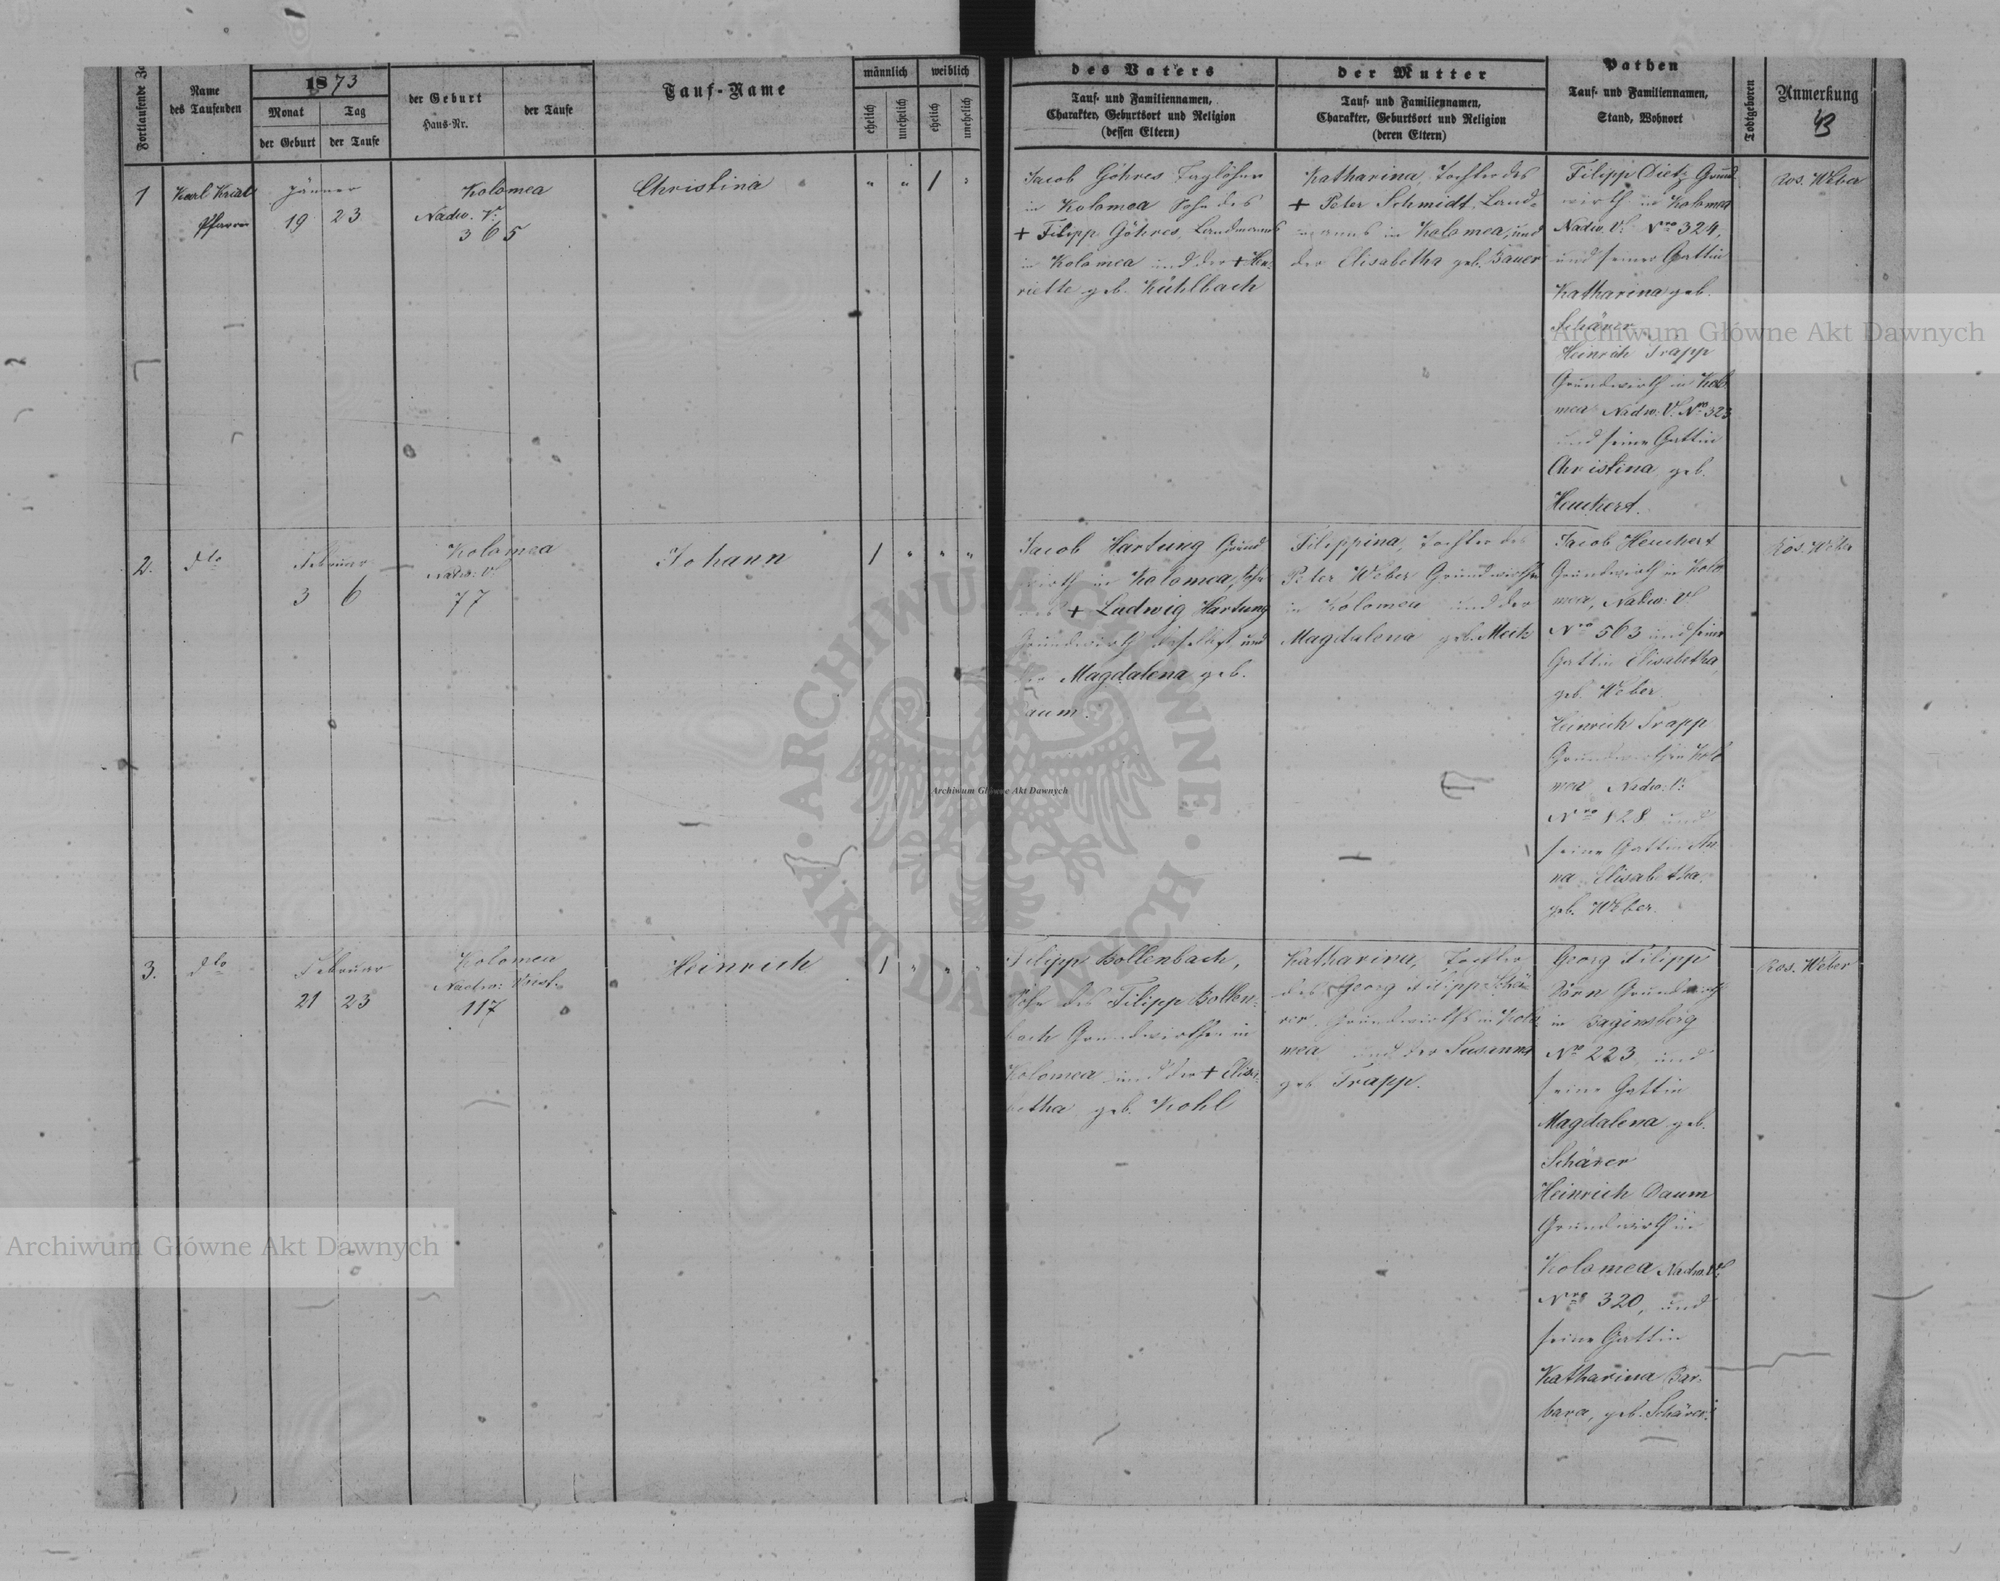 Fortlaufende
Name
des Taufenden
1873
Monat
Tag
der Geburt
der Taufe
der Geburt
Haus-Nr.
der Taufe
Tauf-Name
männlich
weiblich
ehelich
unehelich
ehelich
unehelich
des Vaters
Tauf- und Familiennamen,
Charakter, Geburtsort und Religion
(dessen Eltern)
der Mutter
Tauf- und Familiennamen,
Charakter, Geburtsort und Religion
(deren Eltern)
Pathen
Tauf- und Familiennamen,
Stand, Wohnort
Todtgeboren
Anmerkung
1
Karl
Pfarrer
Jänner
19 23
Kolomea
Nadw. V.
365
Christina
" " 1 "
Jacob Göhres Taglöhner
in Kolomea Sohn des
+ Filipp Göhres, Landmanns
in Kolomea und der + Hen-
riette geb. Kühlbach
Katharina, Tochter des
+ Peter Schmidt, Land-
manns in Kolomea, und
der Elisabetha geb. Bauer
Filipp Dietz Grund-
wirth in Kolomea
Nadw. V. Nro 324,
und seiner Gattin
Katharina geb.
Schärer
Heinrich Trapp
Grundwirth in Kolo
mea Nadw. V. Nro 323
und seine Gattin
Christina geb.
Heuchert.
Ros. Weber
2.
dto
Februar
3 6
Kolomea
Nadw. V.
77
Johann
1 " " "
Jacob Hartung Grund
wirth in Kolomea, Sohn
des + Ludwig Hartung
Grundwirth daselbst und
der Magdalena geb.
Daum.
Filippina, Tochter des
Peter Weber Grundwirthen
in Kolomea und der
Magdalena geb. Meik
Jacob Heuchert
Grundwirth in Kolo
mea, Nadw. V.
Nro 563 und seine
Gattin Elisabetha
geb. Weber
Heinrich Trapp
Grundwirth in Kolo
mea Nadw. V.
Nro 828 und
seine Gattin An
na Elisabetha
geb. Weber.
Ros. Weber
3.
dto
Februar
21 23
Kolomea
Nadw:
117
Heinrich
1 " " "
Filipp Bollenbach,
Sohn des Filipp Bollen-
bach Grundwirthen in
Kolomea und der + Elisa-
betha geb. Kohl
Katharina, Tochter
des Georg Filipp Schä
rer, Grundwirths in Kolo
mea und der Susanna
geb. Trapp.
Georg Filipp
Dörn Grundwirth
in Baginsberg
Nro 223 und
seine Gattin
Magdalena geb.
Schärer
Heinrich Daum
Grundwirth in
Kolomea Nadw. V.
Nro 320, und
seine Gattin
Katharina Bar-
bara, geb. Schärer.
Ros. Weber
Archiwum Główne Akt Dawnych
ARCHIWUM GŁÓWNE · AKT DAWNYCH ·
Archiwum Główne Akt Dawnych
Archiwum Główne Akt Dawnych